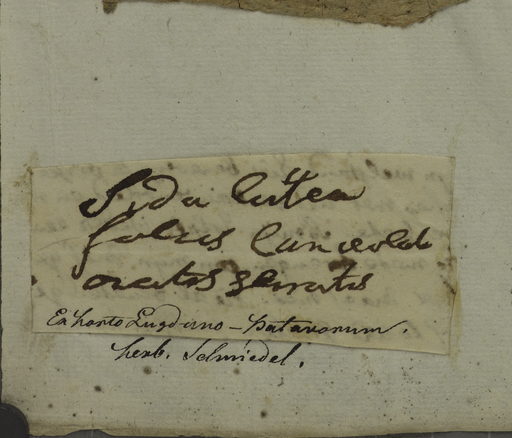 Sida lutea
foliis lanceolat
ovatis serratis
Ex horto Lugduno-patavorum.
herb. Schmiedel.